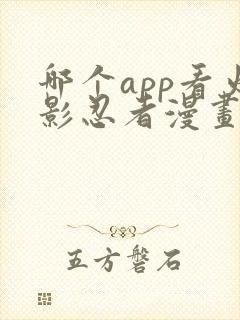 哪个app看火
影忍者漫畫
五方磐石